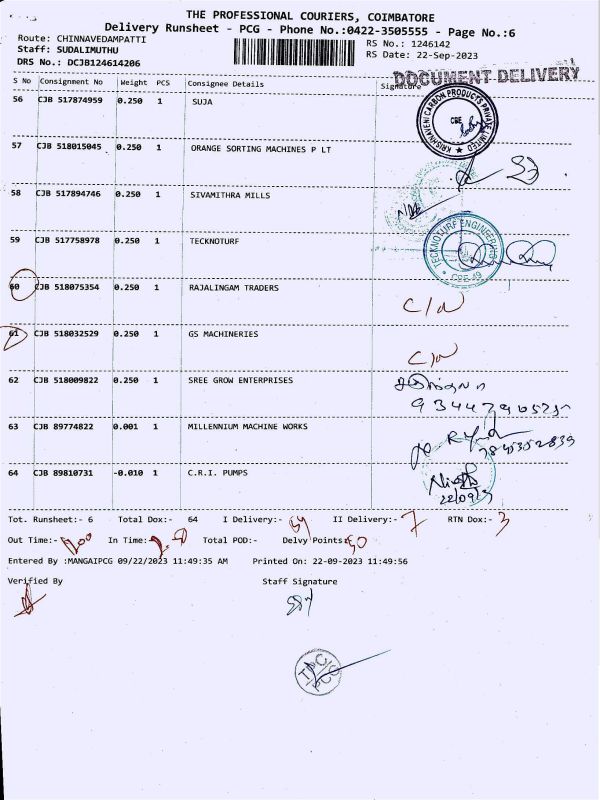 THE PROFESSIONAL COURIERS, COIMBATORE
Delivery Runsheet - PCG - Phone No.:0422-3505555 - Page No.:6
Route: CHINNAVEDAMPATTI
RS No.: 1246142
Staff: SUDALIMUTHU
RS Date: 22-Sep-2023
DRS No.: DCJB124614206
DOCUMENT DELIVERY
S No Consignment No Weight PCS Consignee Details Signature
56 CJB 517874959 0.250 1 SUJA
KRISHNAVENI CARBON PRODUCTS PRIVATE LIMITED
CBE
57 CJB 518015045 0.250 1 ORANGE SORTING MACHINES P LT
58 CJB 517894746 0.250 1 SIVAMITHRA MILLS
59 CJB 517758978 0.250 1 TECKNOTURF
TECKNOTURF ENGINEERING
CBE-49
60 CJB 518075354 0.250 1 RAJALINGAM TRADERS C/N
61 CJB 518032529 0.250 1 GS MACHINERIES C/N
62 CJB 518009822 0.250 1 SREE GROW ENTERPRISES
63 CJB 89774822 0.001 1 MILLENNIUM MACHINE WORKS
64 CJB 89810731 -0.010 1 C.R.I. PUMPS
22/09/23
Tot. Runsheet:- 6 Total Dox:- 64 I Delivery:- II Delivery:- 7 RTN Dox:- 3
Out Time:- In Time:- Total POD:- Delvy Points:-
Entered By :MANGAIPCG 09/22/2023 11:49:35 AM Printed On: 22-09-2023 11:49:56
Verified By Staff Signature